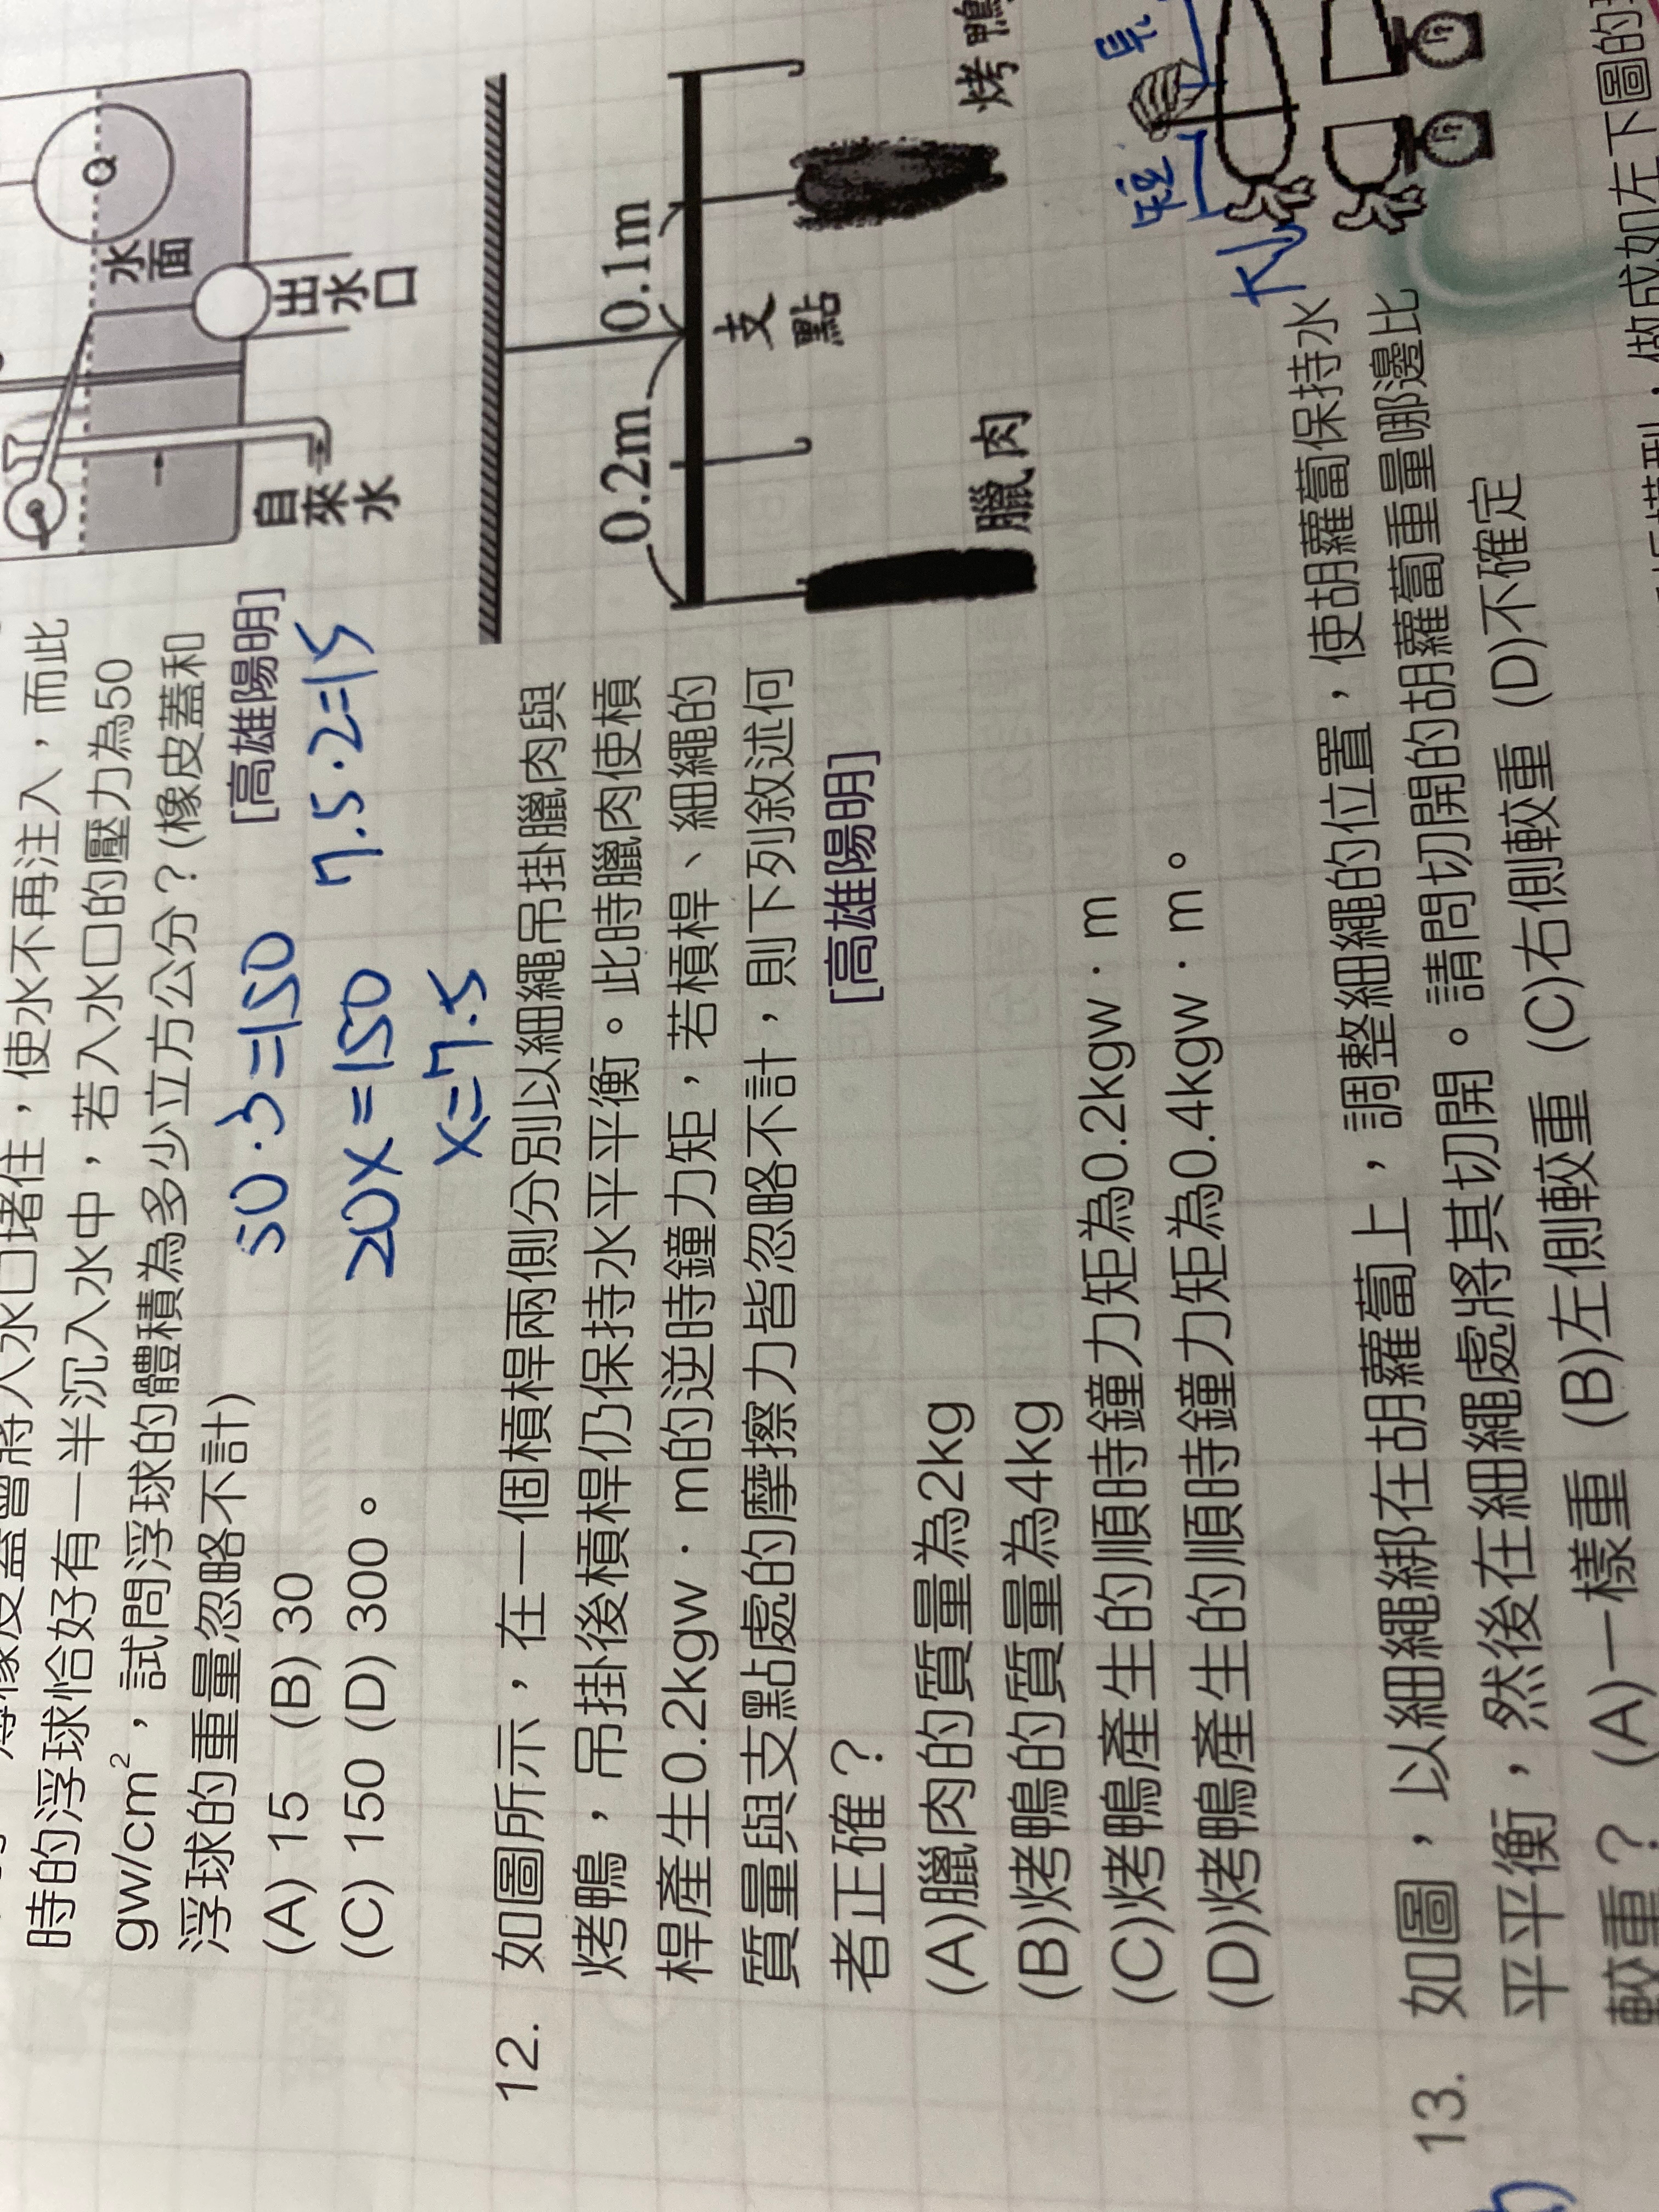 時的浮球恰好有一半沉入水中，若入水口的壓力為50
gw/cm²，試問浮球的體積為多少立方公分？(橡皮蓋和
浮球的重量忽略不計)
[高雄陽明]
(A) 15 (B) 30
(C) 150 (D) 300。
50·3=150
20x=150
x=7.5
7.5·2=15
Q
水面
出水口
自來水
12. 如圖所示，在一個槓桿兩側分別以細繩吊掛臘肉與
烤鴨，吊掛後槓桿仍保持水平平衡。此時臘肉使槓
桿產生0.2kgw·m的逆時鐘力矩，若槓桿、細繩的
質量與支點處的摩擦力皆忽略不計，則下列敘述何
者正確？
[高雄陽明]
(A)臘肉的質量為2kg
(B)烤鴨的質量為4kg
(C)烤鴨產生的順時鐘力矩為0.2kgw·m
(D)烤鴨產生的順時鐘力矩為0.4kgw·m。
0.2m
0.1m
支點
臘肉
烤鴨
13. 如圖，以細繩綁在胡蘿蔔上，調整細繩的位置，使胡蘿蔔保持水
平平衡，然後在細繩處將其切開。請問切開的胡蘿蔔重量哪邊比
較重？ (A)一樣重 (B)左側較重 (C)右側較重 (D)不確定
短
長
大